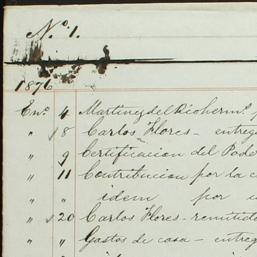 Nº 1.
1876
Enº 4 Martinez del Rio hermº
" 8 Carlos Flores - entreg
" 9 Certificacion del Pode
" 11 Contribucion por la c
" " idem por
" 20 Carlos Flores - remitido
" " Gastos de casa - entreg